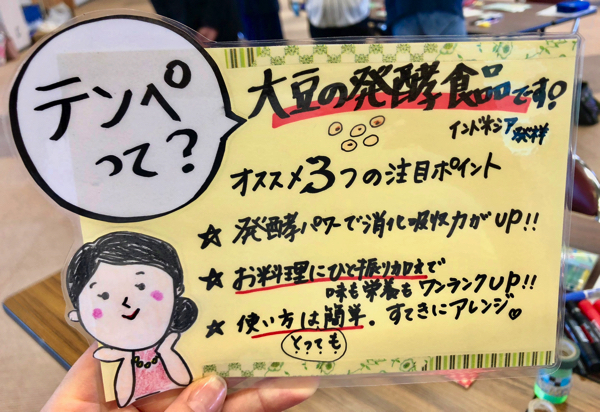 テンペ
って?
大豆の発酵食品です!
インドネシア発祥
オススメ3つの注目ポイント
☆ 発酵パワーで消化吸収力がUP!!
☆ お料理にひと振り加えで
味も栄養もワンランクUP!!
☆ 使い方は簡単。すてきにアレンジ♡
とっても